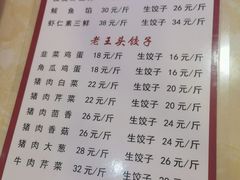 鲅鱼馅 30元/斤 生饺子 28元/斤
虾仁素三鲜 38元/斤 生饺子 36元/斤
老王头饺子
韭菜鸡蛋 18元/斤 生饺子 16元/斤
角瓜鸡蛋 18元/斤 生饺子 16元/斤
猪肉白菜 22元/斤 生饺子 20元/斤
猪肉芹菜 22元/斤 生饺子 20元/斤
猪肉茴香 26元/斤 生饺子 24元/斤
猪肉香菇 26元/斤 生饺子 24元/斤
猪肉大葱 28元/斤 生饺子 26元/斤
牛肉芹菜 32元/斤 生饺子